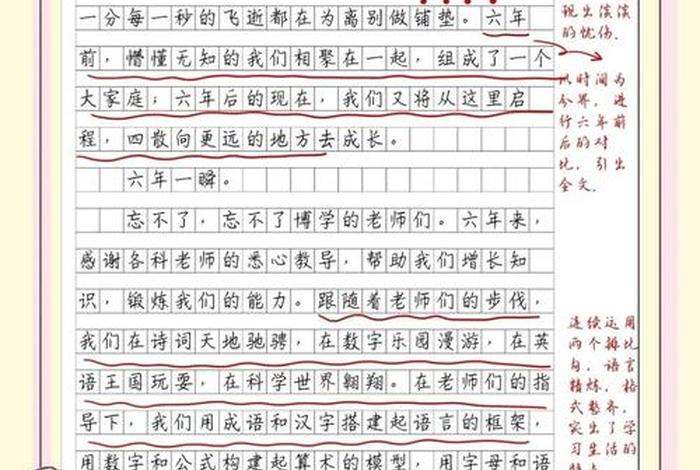 一分每一秒的飞逝都在为离别做铺垫。六年
前，懵懂无知的我们相聚在一起，组成了一个
大家庭；六年后的现在，我们又将从这里启
程，四散向更远的地方去成长。
六年一瞬。
忘不了，忘不了博学的老师们。六年来，
感谢各科老师的悉心教导，帮助我们增长知
识，锻炼我们的能力。跟随着老师们的步伐，
我们在诗词天地驰骋，在数字乐园漫游，在英
语王国玩耍，在科学世界翱翔。在老师们的指
导下，我们用成语和汉字搭建起语言的框架，
用数字和公式构建起算术的模型，用字母和语
现出淡淡
的忧伤.
以时间为
分界，进
行六年前
后的对
比，引出
全文.
连续运用
两个排比
句，语言
精炼，格
式整齐，
突出了学
习生活的